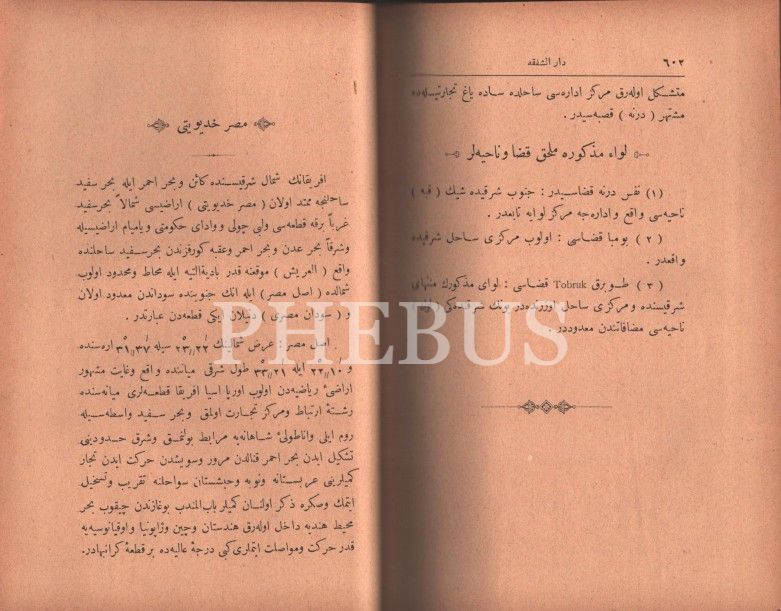 ٦٠٢ دار الشفقه
متشكل اوله‌رق مركز اداره‌سى ساحلده ساده ياغ تجارتيله‌ده
مشتهر ( درنه ) قصبه‌سيدر .
لواء مذكوره ملحق قضا وناحيه‌لر
( ١ ) نفس درنه قضاسيدر : جنوب شرقيده شيك ( قبه )
ناحيه‌سى واقع واداره‌جه مركز لوايه تابعدر .
( ٢ ) بومبا قضاسى : اولوب مركزى ساحل شرقيده
واقعدر .
( ٣ ) طوبرق Tobruk قضاسى : لواى مذكورك منتهاى
شرقيسنده ومركزى ساحل اوزرنده‌در بونك شرقيده‌كى
ناحيه‌سى مضافاتندن معدوددر .
مصر خديويتى
افريقانك شمال شرقيسنده كائن وبحر احمر ايله بحر سفيد
ساحلنجه ممتد اولان ( مصر خديويتى ) اراضيسى شمالاً بحر سفيد
غرباً برقه قطعه‌سى ولى چولى و واداى حكومتى ويامیام اراضيسيله
وشرقاً بحر عدن وبحر احمر وعقبه كورفزندن بحر سفيد ساحلنده
واقع ( العريش ) موقعنه قدر بادية التيه ايله محاط ومحدود اولوب
شمالده ( اصل مصر ) ايله انك جنوبنده سوداندن معدود اولان
و ( سودان مصرى ) دينلان ايكى قطعه‌دن عبارتدر .
اصل مصر : عرض شمالينك ٢٣,,٢٢ سيله ٣١,,٣٧ اره‌سنده
و ٢٢,,١٠ ايله ٣٣,,٢١ طول شرقى مياننده واقع وغايت مشهور
اراضئ رياضيه‌دن اولوب اوروپا اسيا افريقا قطعه‌لرى ميانه‌سنده
رشتهٔ ارتباط ومركز تجارت اولمق وبحر سفيد واسطه‌سيله
روم ايلى واناطولئ شاهانه‌يه مرابط بولنمق وشرق حدودينى
تشكيل ايدن بحر احمر قنالدن مرور وسويشدن حركت ايدن تجار
كميلرينى عربستانه ونوبه وحبشستان سواحلنه تقريب وتسهيل
ايتمك وصكره ذكر اولنان كميلر باب المندب بوغازندن چيقوب بحر
محيط هنديه داخل اوله‌رق هندستان وچين وژاپونيا واوقيانوسيه‌يه
قدر حركت ومواصلت ايتملرى كبى درجهٔ عاليه‌ده بر قطعهٔ كرانبهادر .
PHEBUS